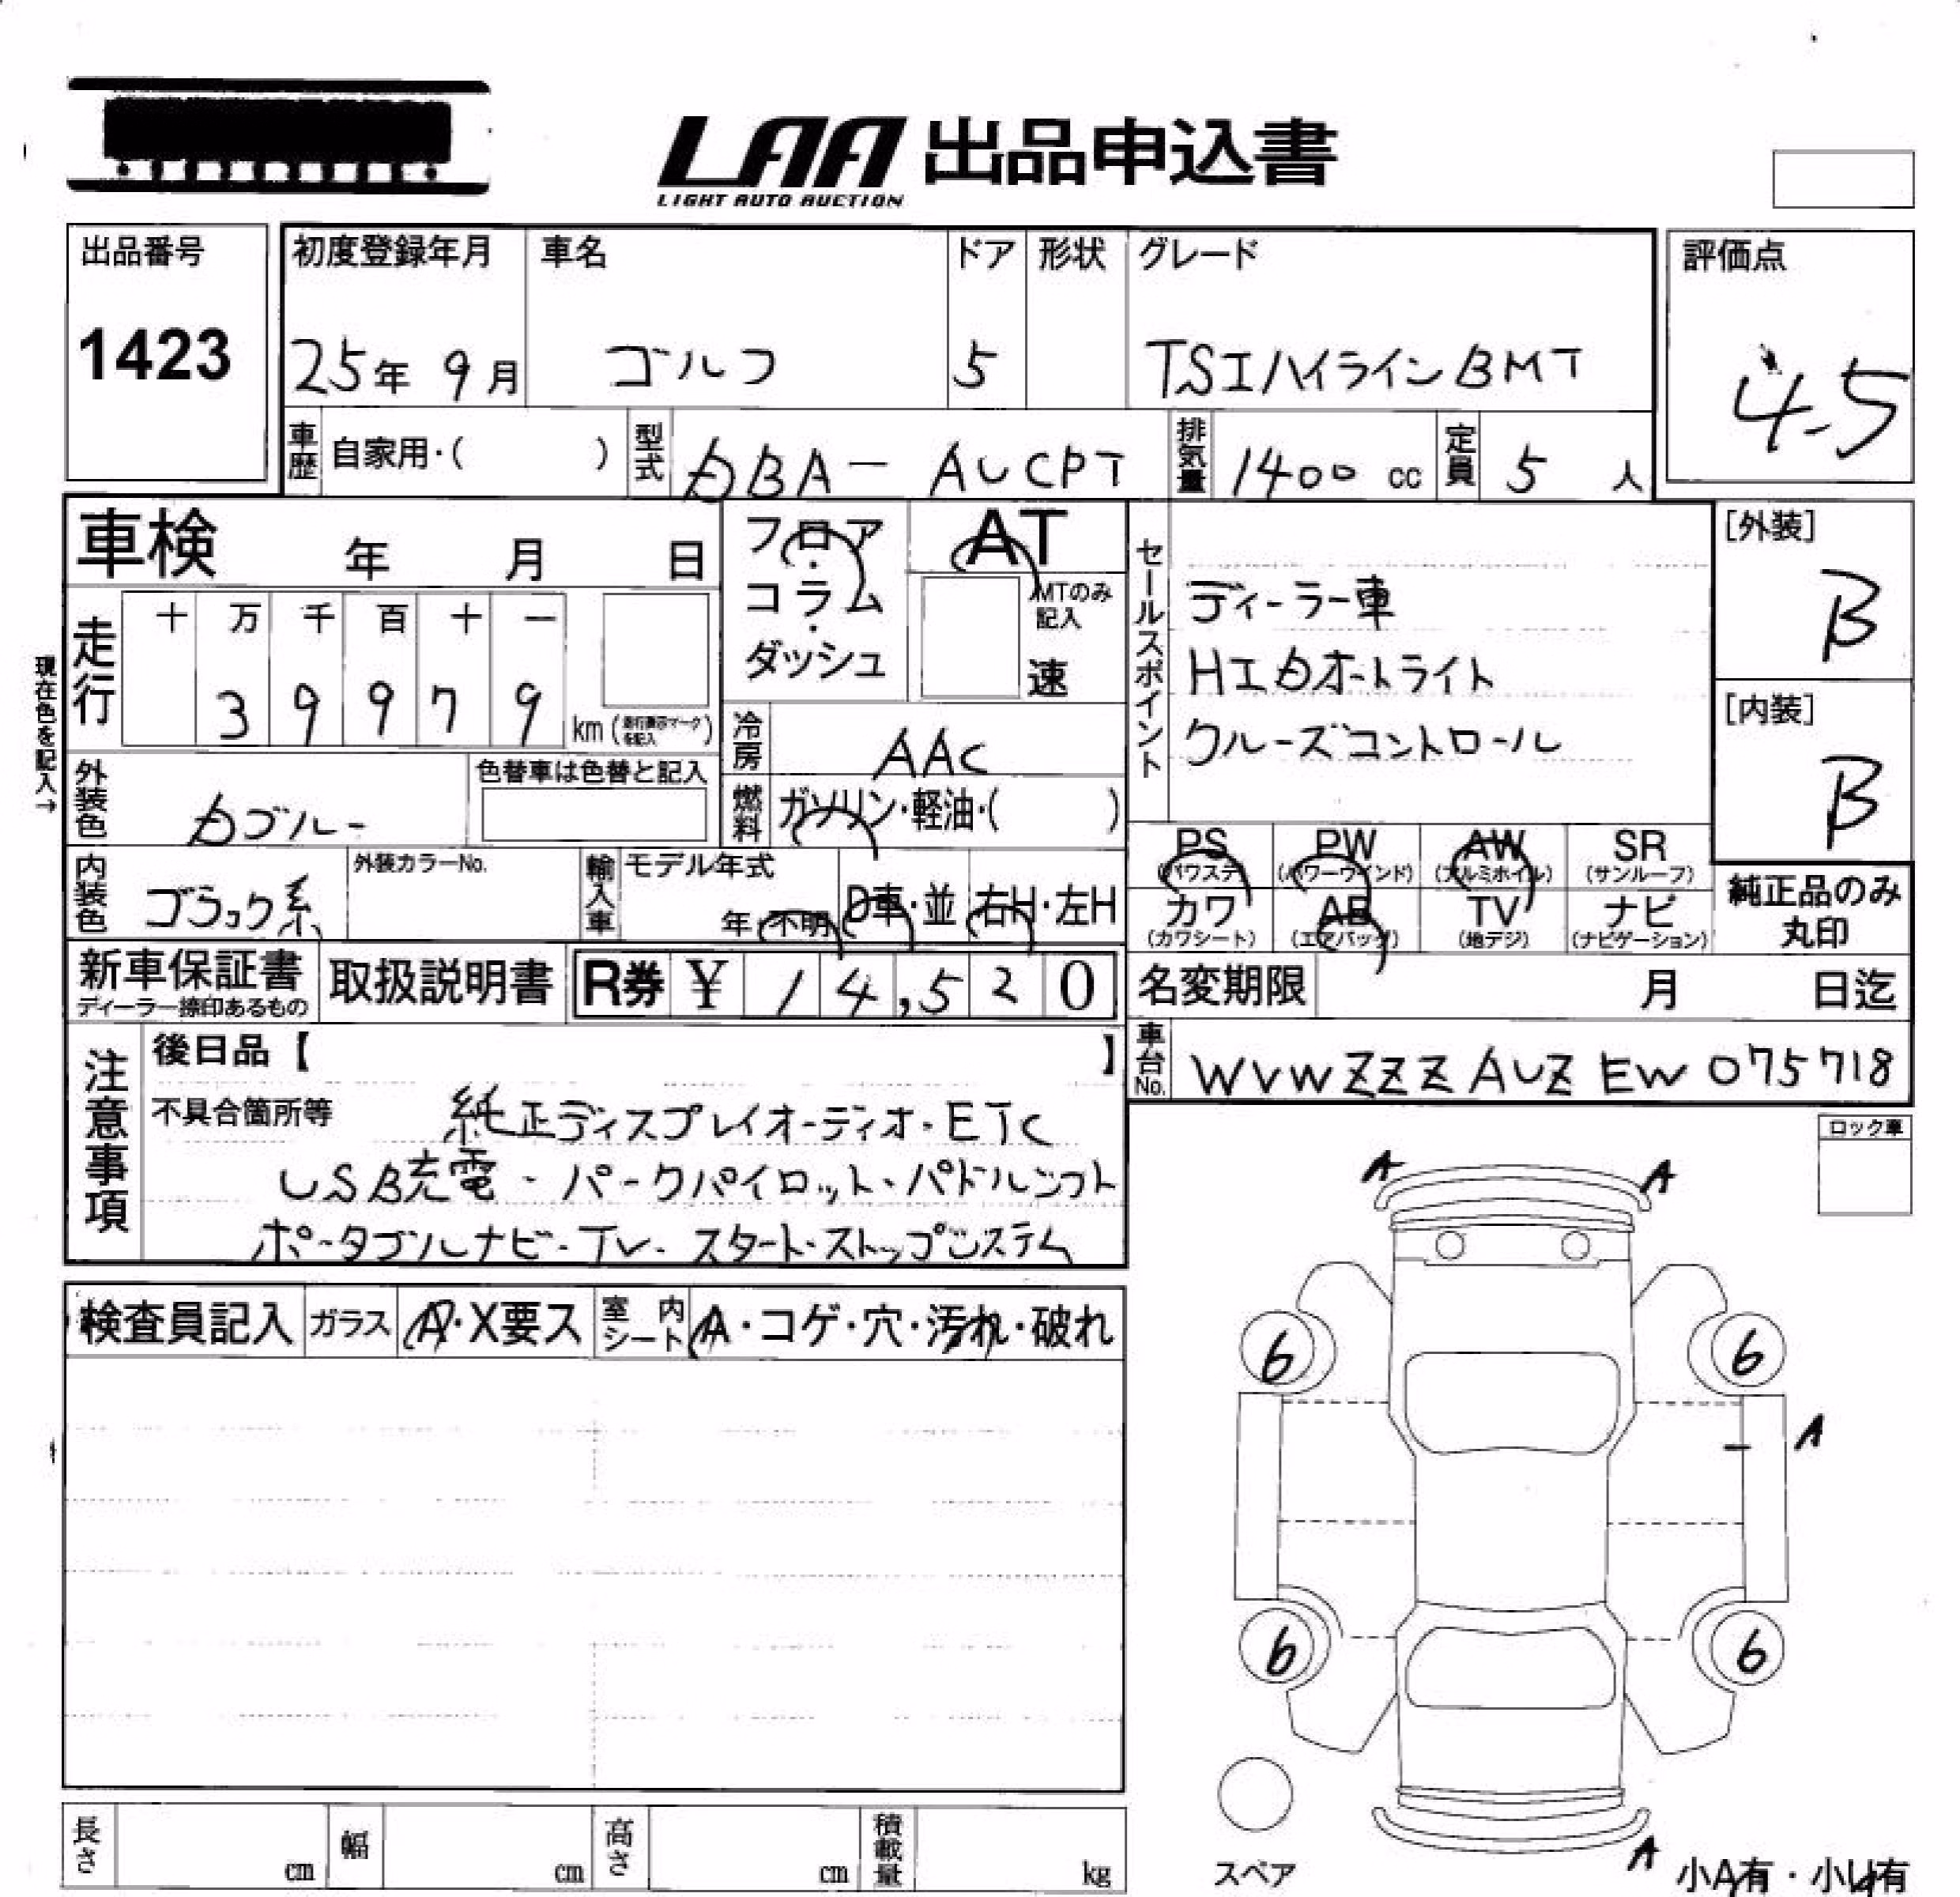 LAA 出品申込書
LIGHT AUTO AUCTION
出品番号
1423
初度登録年月 車名 ドア 形状 グレード
25年 9月 ゴルフ 5 TSIハイラインBMT
評価点
4.5
車歴 自家用・( ) 型式 DBA-AUCPT 排気量 1400 cc 定員 5 人
車検 年 月 日
フロア・コラム・ダッシュ
AT
MTのみ記入
速
セールスポイント
ディーラー車
HIDオートライト
クルーズコントロール
[外装]
B
[内装]
B
現在色を記入→
走行 十 万 千 百 十 一
3 9 9 7 9 km
冷房 AAC
燃料 ガソリン・軽油・( )
外装色 Dブルー
色替車は色替と記入
内装色 ブラック系
外装カラーNo.
輸入車 モデル年式
年 不明 D車・並 右H・左H
PS (パワステ) PW (パワーウインド) AW (アルミホイル) SR (サンルーフ)
カワ (カワシート) AB (エアバッグ) TV (地デジ) ナビ (ナビゲーション)
純正品のみ
丸印
新車保証書
ディーラー捺印あるもの
取扱説明書
R券 ¥ 14,520
名変期限 月 日迄
車台No. WVWZZZAUZEW075718
注意事項
後日品【 】
不具合箇所等 純正ディスプレイオーディオ・ETC
USB充電・パークパイロット・パドルシフト
ポータブルナビ・TV・スタート・ストップシステム
ロック車
A A
検査員記入 ガラス A・X要ス 室内シート A・コゲ・穴・汚れ・破れ
6 6
A
6 6
スペア
A
小A有・小U有
長さ cm 幅 cm 高さ cm 積載量 kg